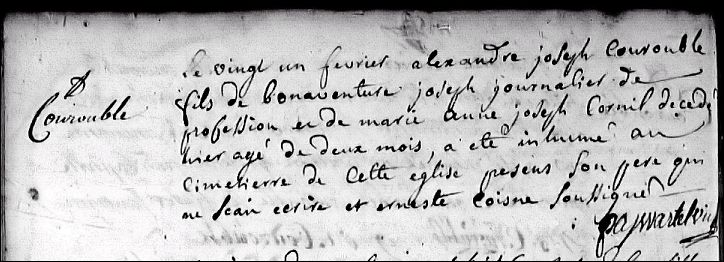 Courouble
le vingt un fevrier alexandre joseph Courouble
fils de bonaventure joseph journalier de
profession et de marie anne joseph Cornil decedé
hier agé de deux mois, a eté inhumé au
Cimetierre de Cette église presens son pere qui
ne scait ecrire et erneste Coisne soussigné